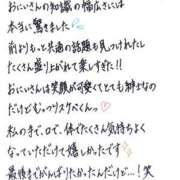 おにいさんの知識の幅広さには
本当に驚きました
前よりもっと共通の話題も見つけれたし
たくさん盛り上がれて楽しすぎた!!
おにいさんは笑顔が可愛くてとても紳士なの
だけどむっつりスケベくん
私の手、口、体でたくさん気持ちよく
なっていただけて嬉しかったです
最後までがんばりたかったんだけど…!笑